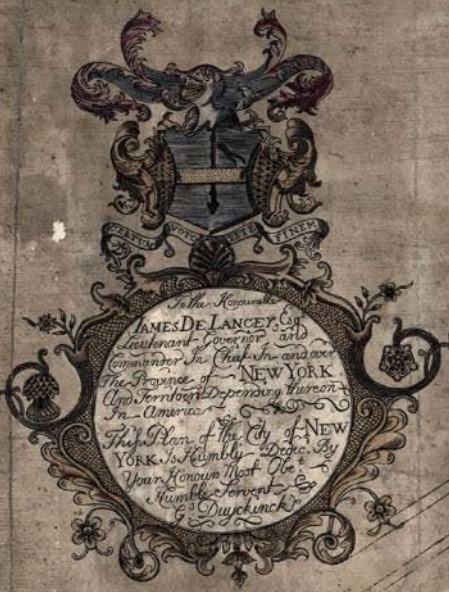 CERTUM VOTO PETE FINEM
To the Honourable
JAMES DE LANCEY, Esqr
Lieutenant Governor and
Commander In Chief In and over
The Province of NEW YORK
And Territories Depending thereon
In America
This Plan of the City of NEW
YORK Is Humbly Dedic. By
Your Honours Most Obet
Humble Servent
G. Duyckinck